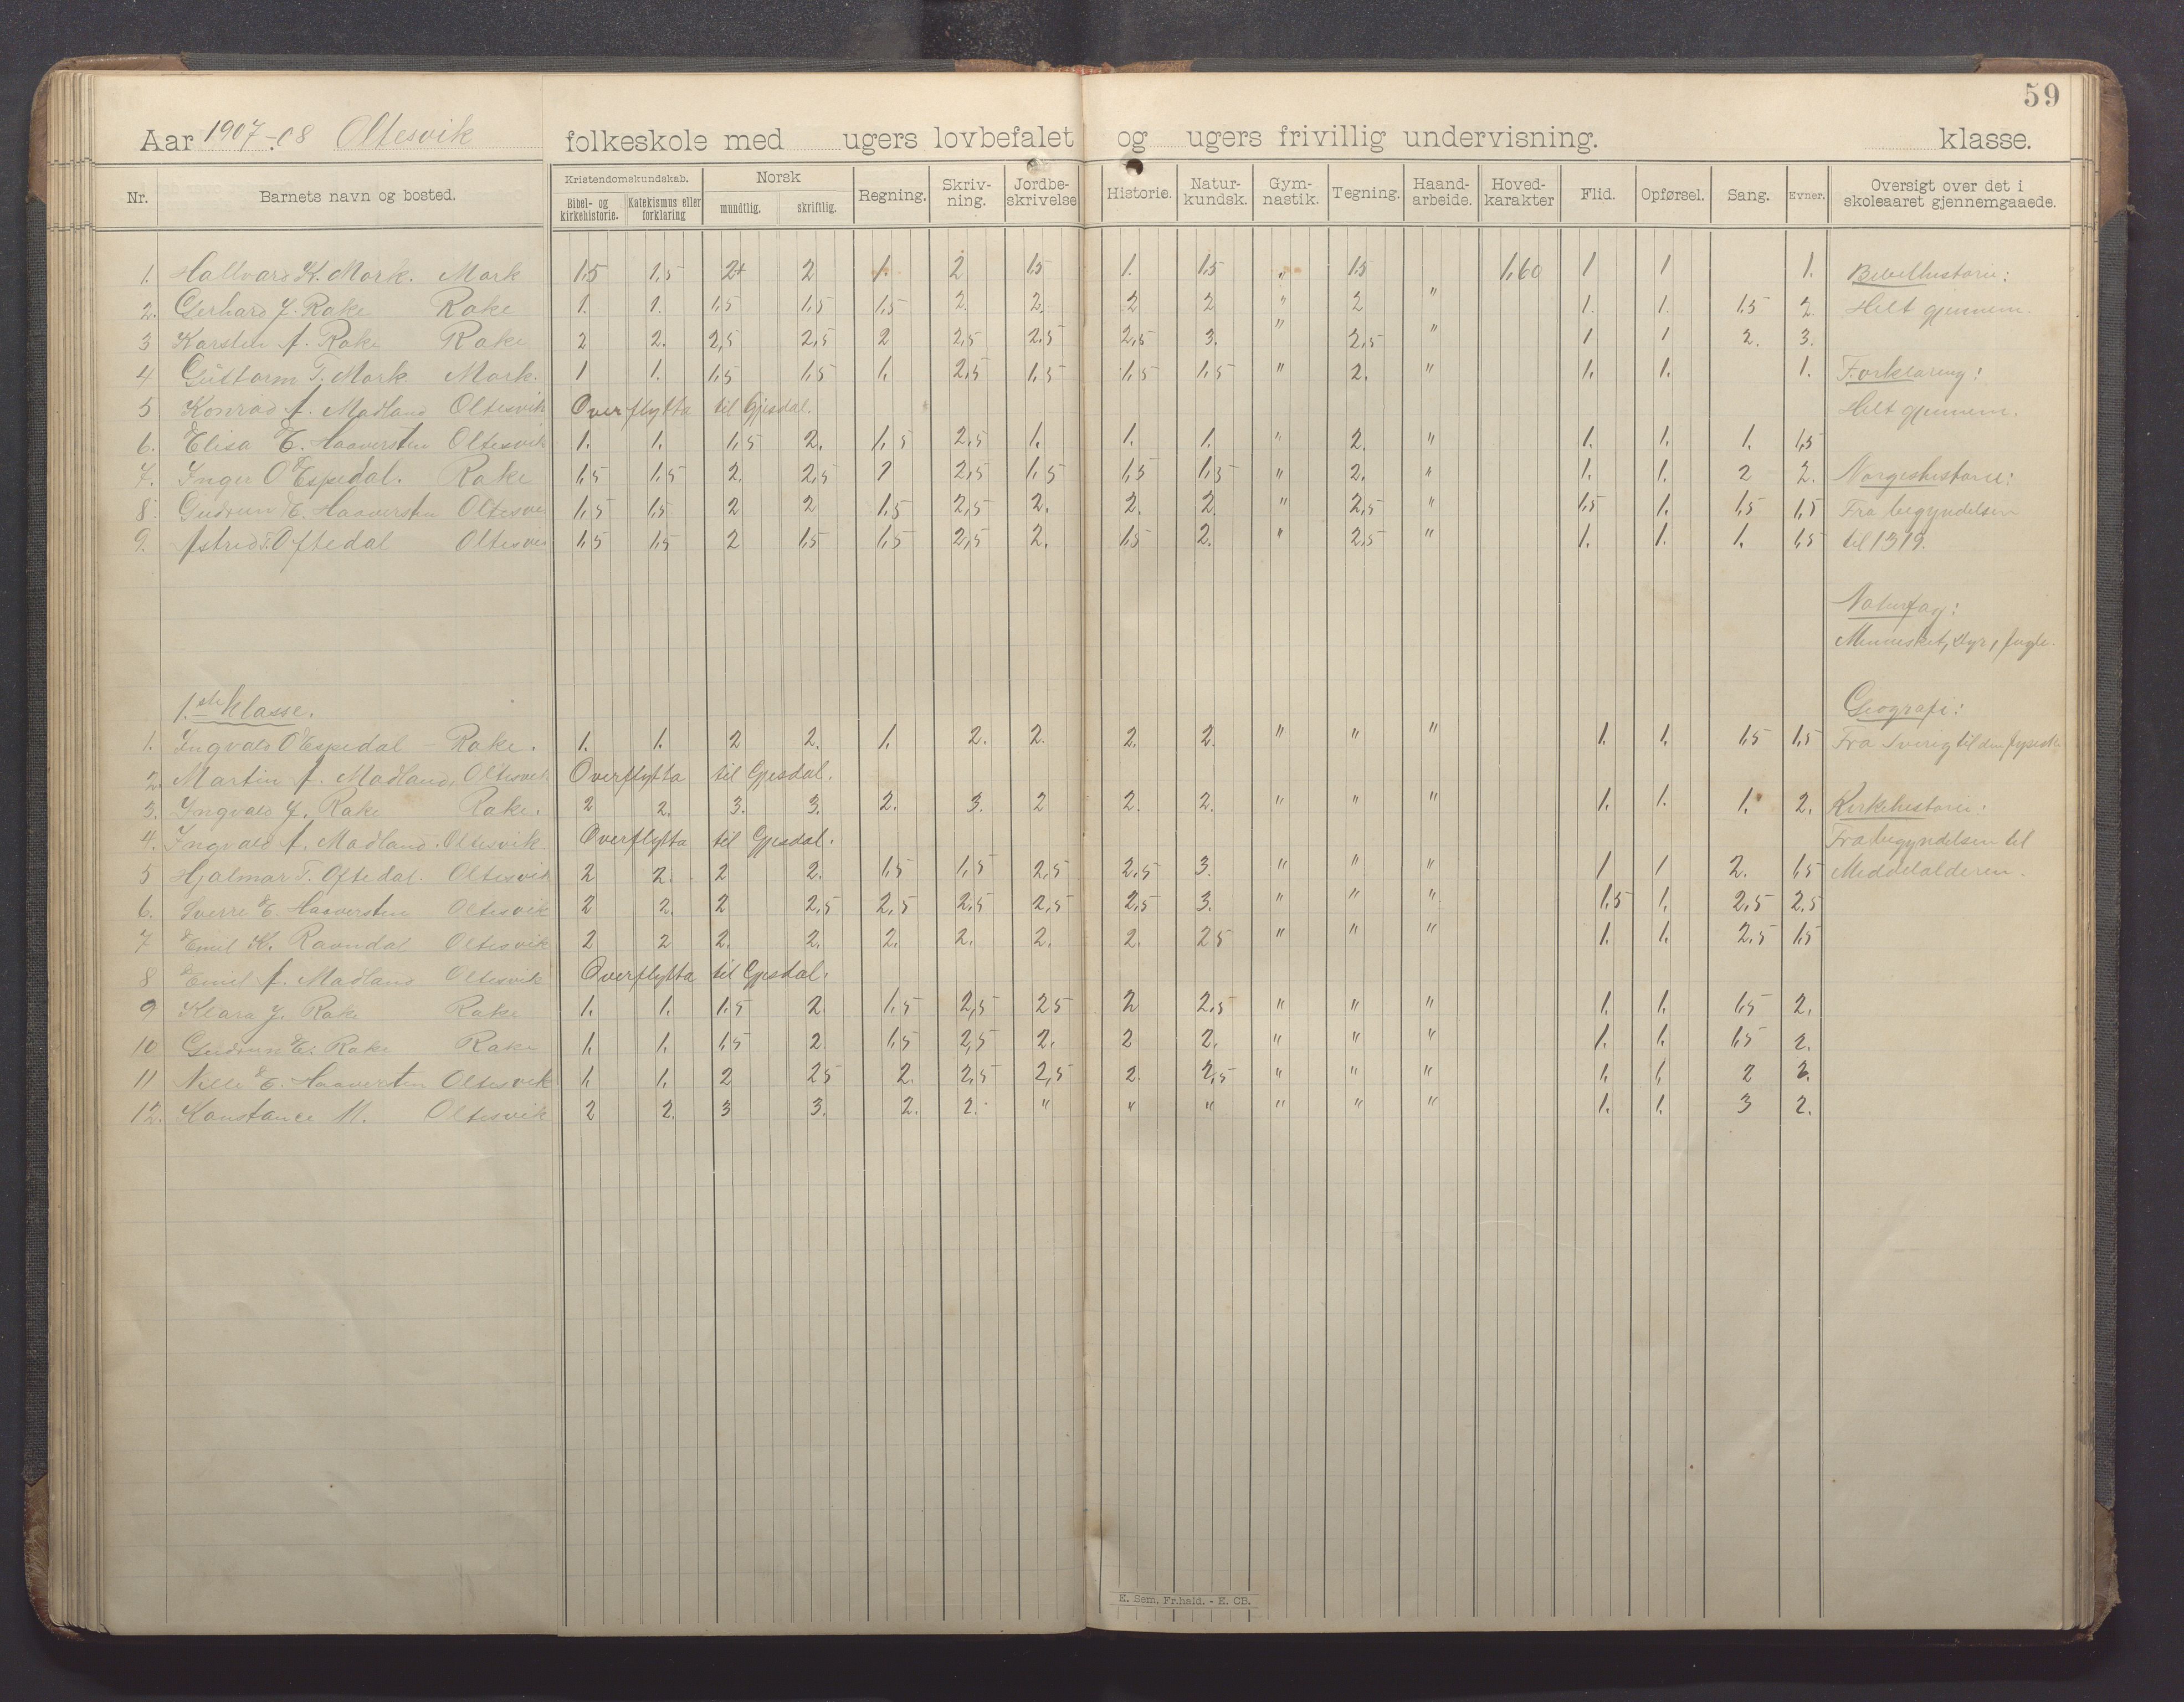 59
Aar 1907-08 Oltesvik folkeskole med ugers lovbefalet og ugers frivillig undervisning. klasse.
Nr. Barnets navn og bosted. Kristendomskundskab. Bibel- og kirkehistorie. Katekismus eller forklaring Norsk mundtlig. skriftlig. Regning. Skriv-ning. Jordbe-skrivelse Historie. Natur-kundsk. Gym-nastik. Tegning. Haand-arbeide. Hoved-karakter Flid. Opførsel. Sang. Evner. Oversigt over det i skoleaaret gjennemgaaede.
1. Hallvard K. Mork. Mork 1,5 1,5 2+ 2 1. 2 1,5 1. 1,5 " 1,5 1,60 1 1 1. Bibelhistorie:
2. Gerhard J. Rake Rake 1. 1. 1,5 1,5 1,5 2. 2. 2 2 " 2 " 1. 1. 1,5 2. Helt gjennem.
3 Karsten A. Rake Rake 2 2. 2,5 2,5 2 2,5 2,5 2,5 3. " 2,5 " 1 1 2. 3.
4 Guttorm T. Mork Mork. 1 1. 1,5 1,5 1. 2,5 1,5 1,5 1,5 " 2. " 1. 1. 1. Forklaring:
5 Konrad A. Madland Oltesvik Overflytta til Gjesdal. Helt gjennem.
6. Elisa E. Haaversten Oltesvik 1. 1. 1,5 2. 1,5 2,5 1. 1. 1. " 2. " 1. 1. 1. 1,5
7. Inger O Espedal. Rake 1,5 1,5 2. 2,5 1 2,5 1,5 1,5 1,5 " 2. " 1. 1. 2 2. Norgeshistorie:
8. Gudrun E. Haaversten Oltesvi 1,5 1,5 2 2 1,5 2,5 2. 2. 2. " 2,5 " 1,5 1. 1,5 1,5 Fra begyndelsen
9. Astrid T. Oftedal Oltesvi 1,5 1,5 2 1,5 1,5 2,5 2. 1,5 2. " 2,5 " 1. 1. 1. 1,5 til 1319.
Naturfag:
Mennesket, dyr, fugle.
1.ste klasse.
Geografi:
1. Ingvald O Espedal - Rake. 1. 1. 2 2. 1. 2. 2. 2. 2. " " " 1. 1. 1,5 1,5 Fra Sverig til den fysiske
2. Martin A. Madland, Oltesvik Overflytta til Gjesdal.
3. Ingvald J. Rake Rake. 2 2. 3. 3. 2. 3. 2 2. 2. " " " 1. 1. 1. 2. Kirkehistorie:
4. Ingvald A. Madland. Oltesvik Overflytta til Gjesdal. Fra begyndelsen til
5 Hjalmar T. Oftedal. Oltesvik 2 2. 2 2. 1,5 1,5 2,5 2,5 3. " " " 1 1 2. 1,5 Middelalderen.
6. Sverre E. Haaversten Oltesvik 2 2. 2 2,5 2,5 2,5 2,5 2,5 3. " " " 1,5 1. 2,5 2,5
7 Emil K. Ravndal Oltesvik 2 2 2. 2. 2. 2. 2. 2. 25 " " " 1. 1. 2,5 1,5
8 Emil A. Madland Oltesvik Overflytta til Gjesdal.
9 Klara J. Rake Rake 1. 1. 1,5 2. 1,5 2,5 25 2 2,5 " " " 1. 1. 1,5 2.
10 Gudrun E. Rake Rake 1. 1. 1,5 2. 1,5 2,5 2. 2 2. " " " 1. 1. 1,5 2.
11 Nelli E. Haaversten Oltesvik 1. 1. 2 25 2. 2,5 2,5 2. 2,5 " " " 1. 1. 2 2.
12. Konstance M. Oltesvik 2 2. 3 3. 2. 2. " " " " " " 1. 1. 3 2.
E. Sem, Fr.hald. - E. CB.